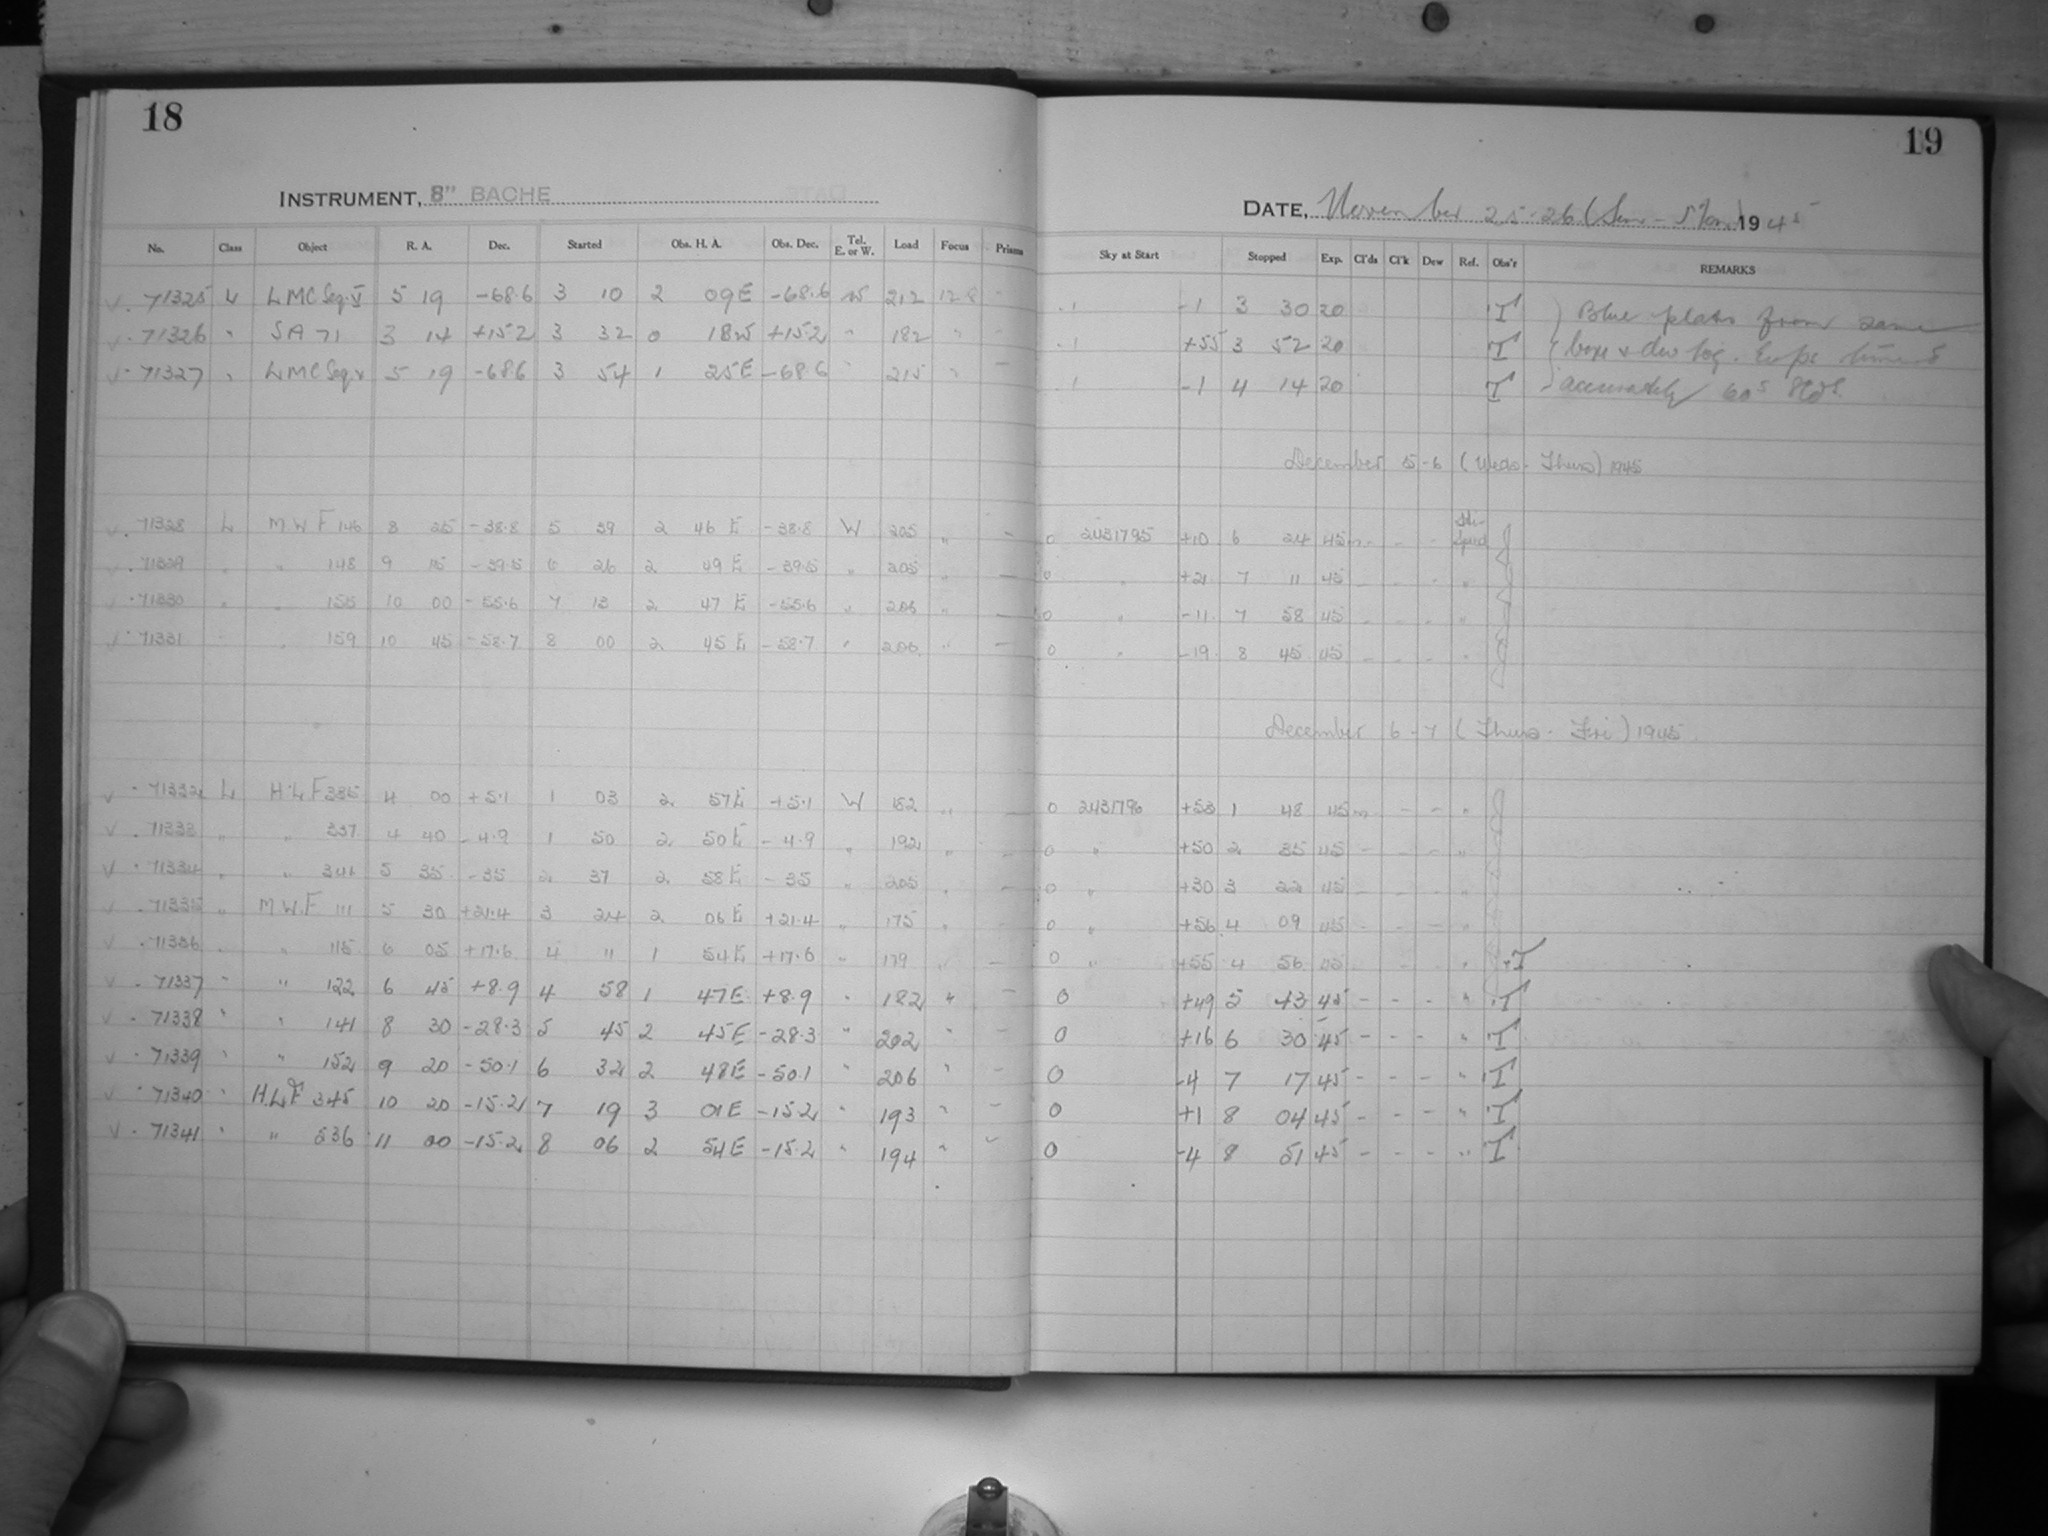 18
INSTRUMENT, 8" BACHE
No. Class Object R. A. Dec. Started Obs. H. A. Obs. Dec. Tel. E. or W. Load Focus Prisms
71325 L LMC Seq. V 5 19 -68.6 3 10 2 09 E -68.6 W 212 12.8 -
71326 " SA 71 3 14 +15.2 3 32 0 18 W +15.2 " 182 " -
71327 " LMC Seq V 5 19 -68.6 3 54 1 25 E -68.6 " 215 " -
71328 L M W F 146 8 25 -38.8 5 39 2 46 E -38.8 W 205 " -
71329 " " 148 9 15 -39.5 6 26 2 49 E -39.5 " 205 " -
71330 " " 155 10 00 -55.6 7 13 2 47 E -55.6 " 206 " -
71331 " " 159 10 45 -58.7 8 00 2 45 E -58.7 " 206 " -
71332 L H.L.F 335 4 00 +5.1 1 03 2 57 E +5.1 W 182 "
71333 " " 337 4 40 -4.9 1 50 2 50 E -4.9 " 192 " -
71334 " " 341 5 35 -35 2 37 2 58 E -35 " 205 " -
71335 " M.W.F 111 5 30 +21.4 3 24 2 06 E +21.4 " 175 " -
71336 " " 115 6 05 +17.6 4 11 1 54 E +17.6 " 179 " -
71337 " " 122 6 45 +8.9 4 58 1 47 E +8.9 " 182 " -
71338 " " 141 8 30 -28.3 5 45 2 45 E -28.3 " 202 " -
71339 " " 152 9 20 -50.1 6 32 2 48 E -50.1 " 206 " -
71340 " H.L.F 345 10 20 -15.2 7 19 3 01 E -15.2 " 193 " -
71341 " " 536 11 00 -15.2 8 06 2 54 E -15.2 " 194 " -
19
DATE, November 25-26 (Sun - Mon) 1945
Sky at Start Stopped Exp. Cl'ds Cl'k Dew Ref. Obs'r REMARKS
.1 -1 3 30 20 T Blue plates from same
.1 +55 3 52 20 T box & dev tog. Exps timed
.1 -1 4 14 20 T accurately 60s
December 5-6 (Weds - Thurs) 1945
0 2431795 +10 6 24 45m - - -
0 " +21 7 11 45 - - - "
0 " -11 7 58 45 - - - "
0 " -19 8 45 45 - - - "
December 6-7 (Thurs - Fri) 1945
0 2431796 +53 1 48 45m - - "
0 " +50 2 35 45 - - - "
0 " +30 3 22 45 - - - "
0 " +56 4 09 45 - - - "
0 " +55 4 56 45 - - - " T
0 +49 5 43 45 - - - " T
0 +16 6 30 45 - - - " T
0 -4 7 17 45 - - - " T
0 +1 8 04 45 - - - " T
0 -4 8 51 45 - - - " T